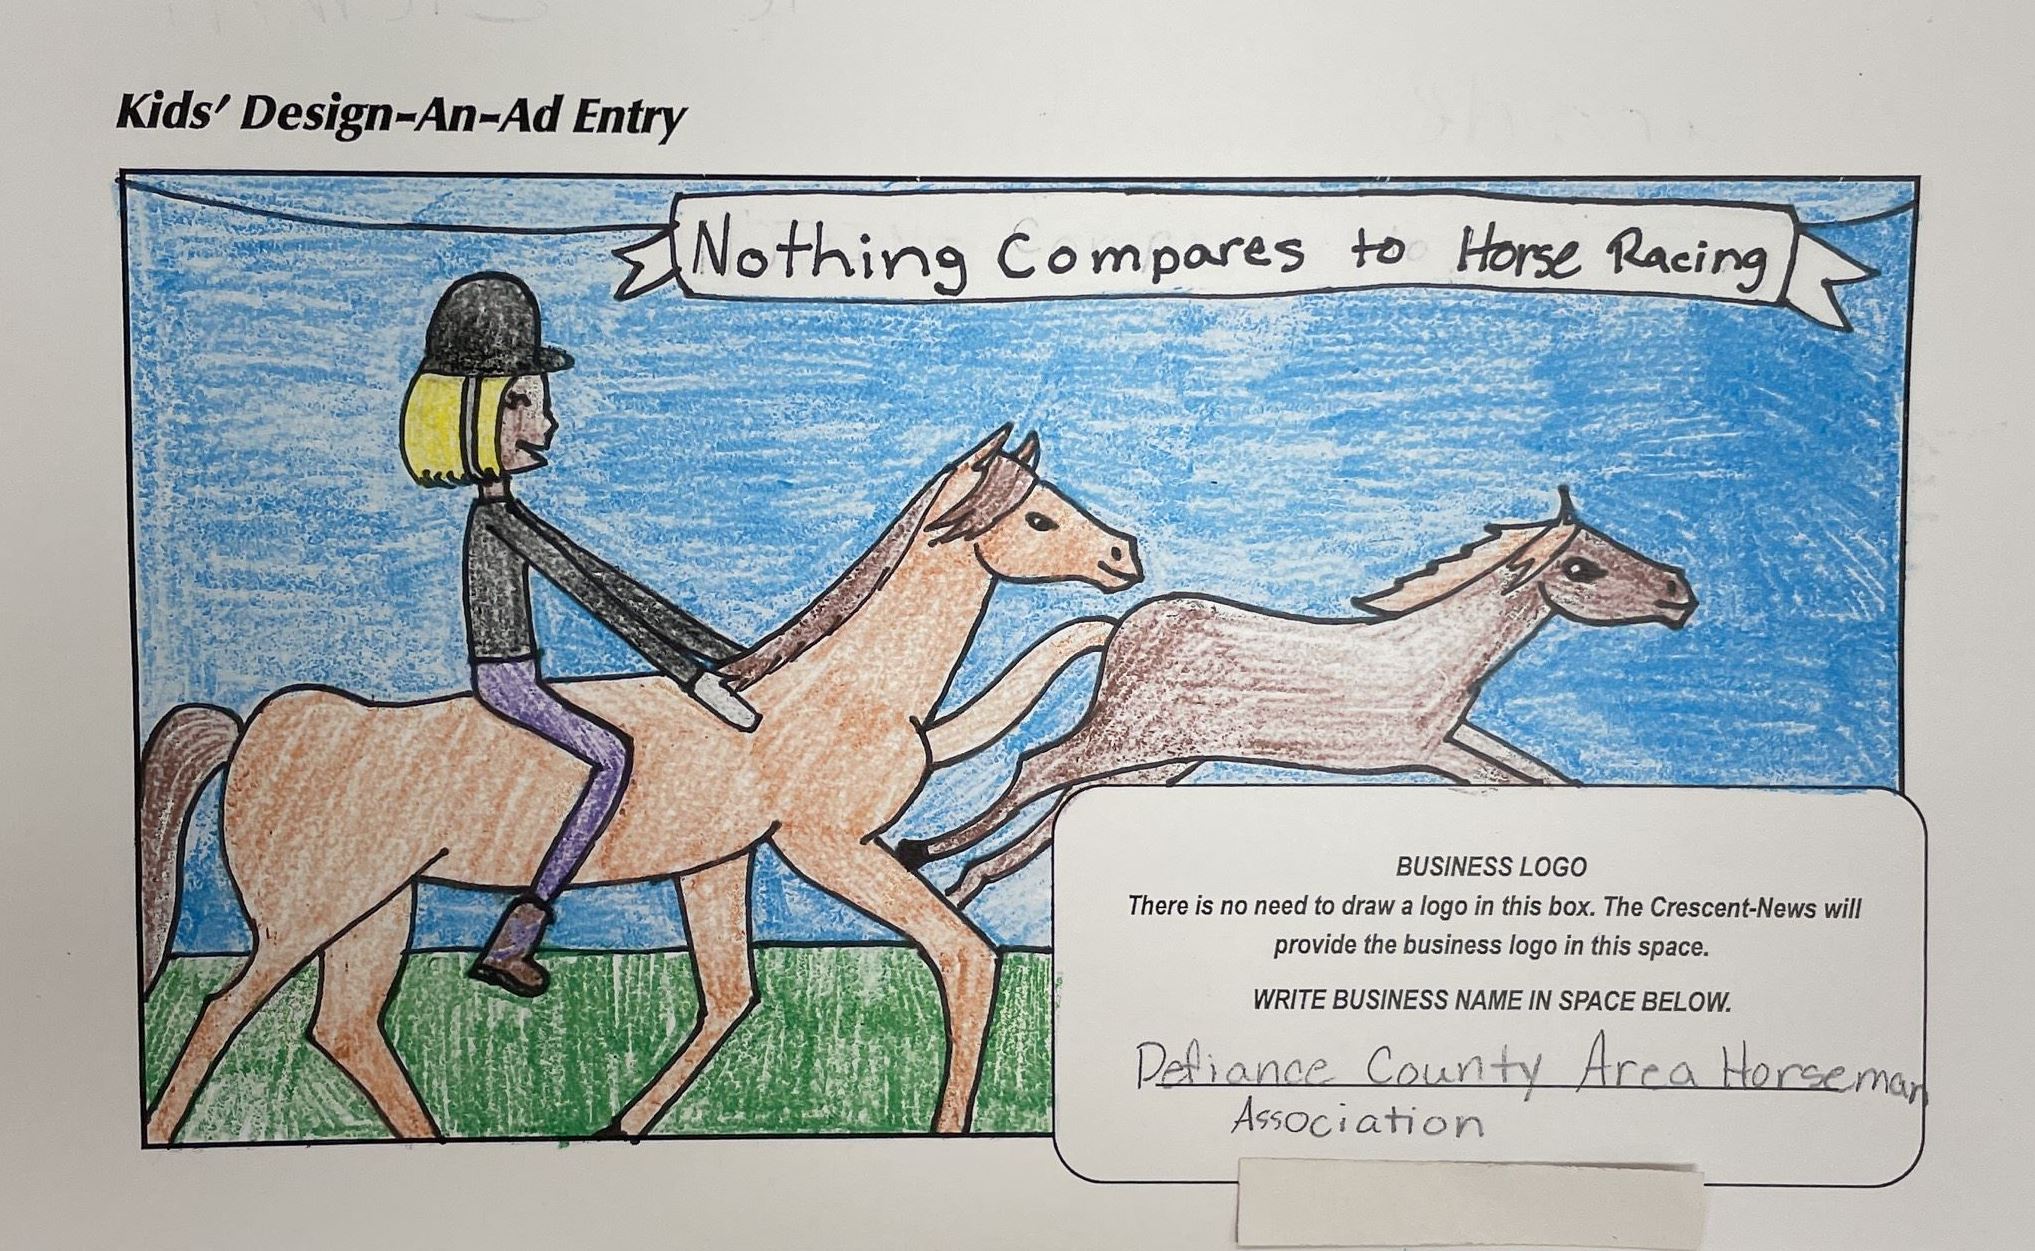 Kids' Design-An-Ad Entry
Nothing Compares to Horse Racing
BUSINESS LOGO
There is no need to draw a logo in this box. The Crescent-News will
provide the business logo in this space.
WRITE BUSINESS NAME IN SPACE BELOW.
Defiance County Area Horseman
Association